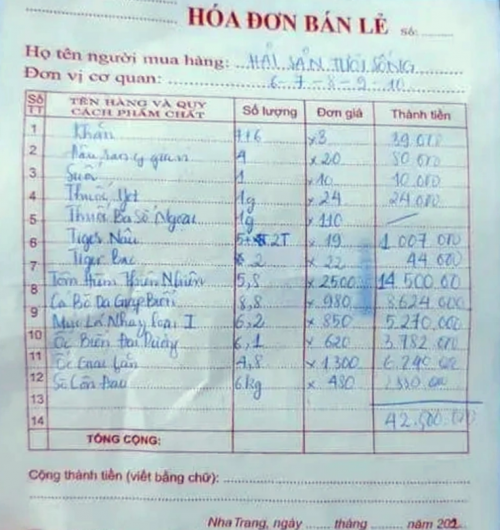 HÓA ĐƠN BÁN LẺ Số:
Họ tên người mua hàng: HẢI SẢN TƯƠI SỐNG
Đơn vị cơ quan: 6-7-8-9-10
Số TT TÊN HÀNG VÀ QUY CÁCH PHẨM CHẤT Số lượng Đơn giá Thành tiền
1 Khăn 7+6 ×3 39 000
2 4 ×20 80 000
3 Suối 1 ×10 10.000
4 Thuốc Jet 1g ×24 24 000
5 Thuốc Ba Số Ngoại 1g ×110
6 Tiger Nâu 2T ×19 1 007 000
7 Tiger Bạc 2 ×22 44 000
8 Tôm Hùm Thiên Nhiên 5,8 ×2500 14 500 000
9 Cá Bò Da Giáp Biển 8,8 ×980 8.624 000
10 Mực Lá Nháy Loại I 6,2 ×850 5.270.000
11 Ốc Biển Đại Dương 6,1 ×620 3.782 000
12 Ốc Gai Lớn 4,8 ×1300 6.240 000
13 Sò Côn Đảo 6kg ×480 2 880 000
14 42.500.000
TỔNG CỘNG:
Cộng thành tiền (viết bằng chữ):
Nha Trang, ngày ...... tháng ...... năm 202